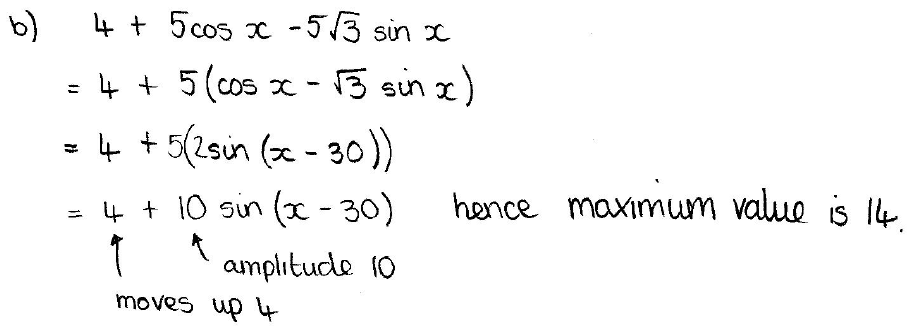 b) 4 + 5cos x - 5√3 sin x
= 4 + 5(cos x - √3 sin x)
= 4 + 5(2sin (x - 30))
= 4 + 10 sin (x - 30) hence maximum value is 14.
↑ ↑ amplitude 10
moves up 4